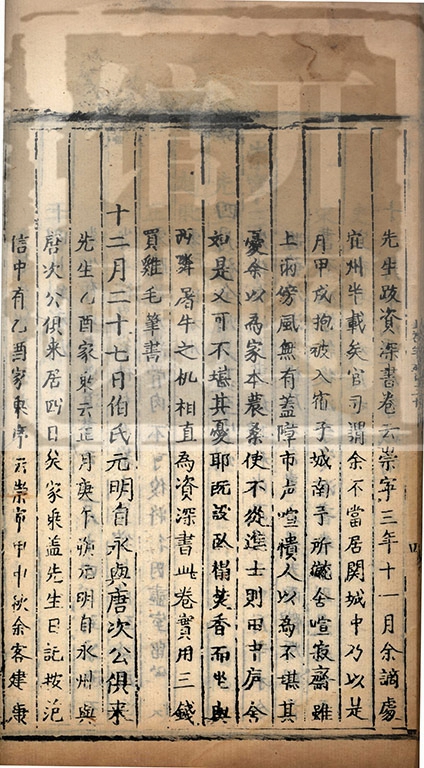 先生跋資深書卷云崇寧三年十一月余謫處
宜州半載矣官司謂余不當居関城中乃以是
月甲戌抱被入宿子城南予所僦舍喧寂齋雖
上雨傍風無有蓋障市声喧憒人以為不堪其
憂余以為家本農桑使不從進士則田中庐舍
如是又可不堪其憂耶既設臥榻焚香而坐與
西鄰屠牛之机相直為資深書此卷實用三錢
買雞毛筆書
十二月二十七日伯氏元明自永與唐次公俱来
先生乙酉家乗云正月庚午朔元明自永州與
唐次公俱来居四日矣家乗蓋先生日記按范
信中有乙酉家乗序云崇寧甲申秋余客建康